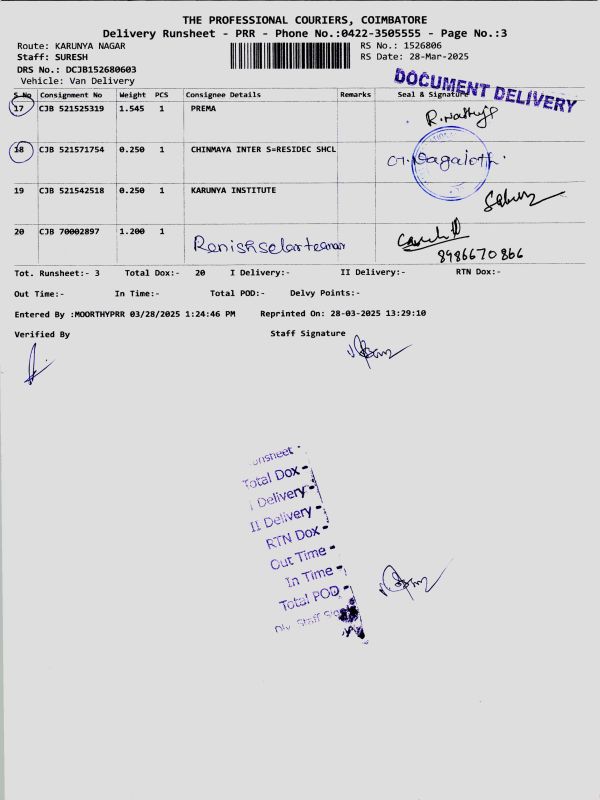 THE PROFESSIONAL COURIERS, COIMBATORE
Delivery Runsheet - PRR - Phone No.:0422-3505555 - Page No.:3
Route: KARUNYA NAGAR RS No.: 1526806
Staff: SURESH RS Date: 28-Mar-2025
DRS No.: DCJB152680603
Vehicle: Van Delivery
DOCUMENT DELIVERY
S No Consignment No Weight PCS Consignee Details Remarks Seal & Signature
17 CJB 521525319 1.545 1 PREMA
18 CJB 521571754 0.250 1 CHINMAYA INTER S=RESIDEC SHCL
19 CJB 521542518 0.250 1 KARUNYA INSTITUTE
20 CJB 70002897 1.200 1
8986670866
Tot. Runsheet:- 3 Total Dox:- 20 I Delivery:- II Delivery:- RTN Dox:-
Out Time:- In Time:- Total POD:- Delvy Points:-
Entered By :MOORTHYPRR 03/28/2025 1:24:46 PM Reprinted On: 28-03-2025 13:29:10
Verified By Staff Signature
Total Dox -
I Delivery -
II Delivery -
RTN Dox -
Out Time -
In Time -
Total POD -